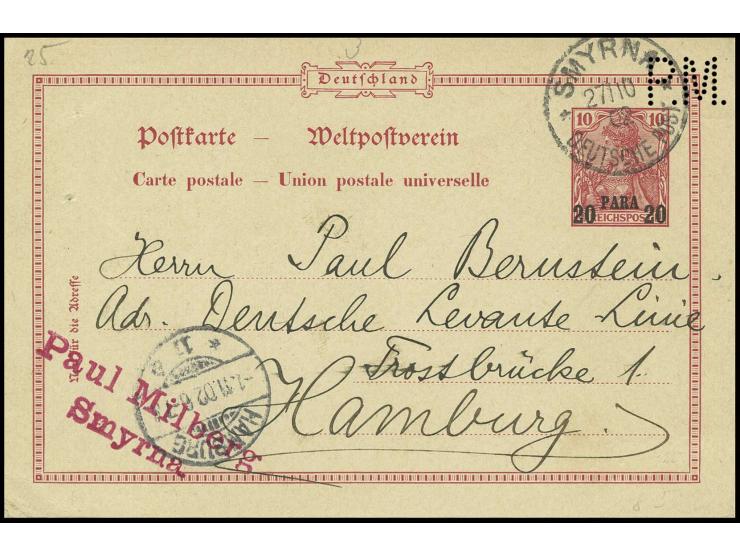 25.
P.M.
Deutschland
SMYRNA
27/10
02
DEUTSCHE POST
10 10
PARA
20 20
REICHSPOST
Postkarte — Weltpostverein
Carte postale — Union postale universelle
Nur für die Adresse
Herrn Paul Bernstein.
Adr. Deutsche Levante-Linie
Trostbrücke 1
Hamburg.
Paul Milberg
Smyrna
HAMBURG